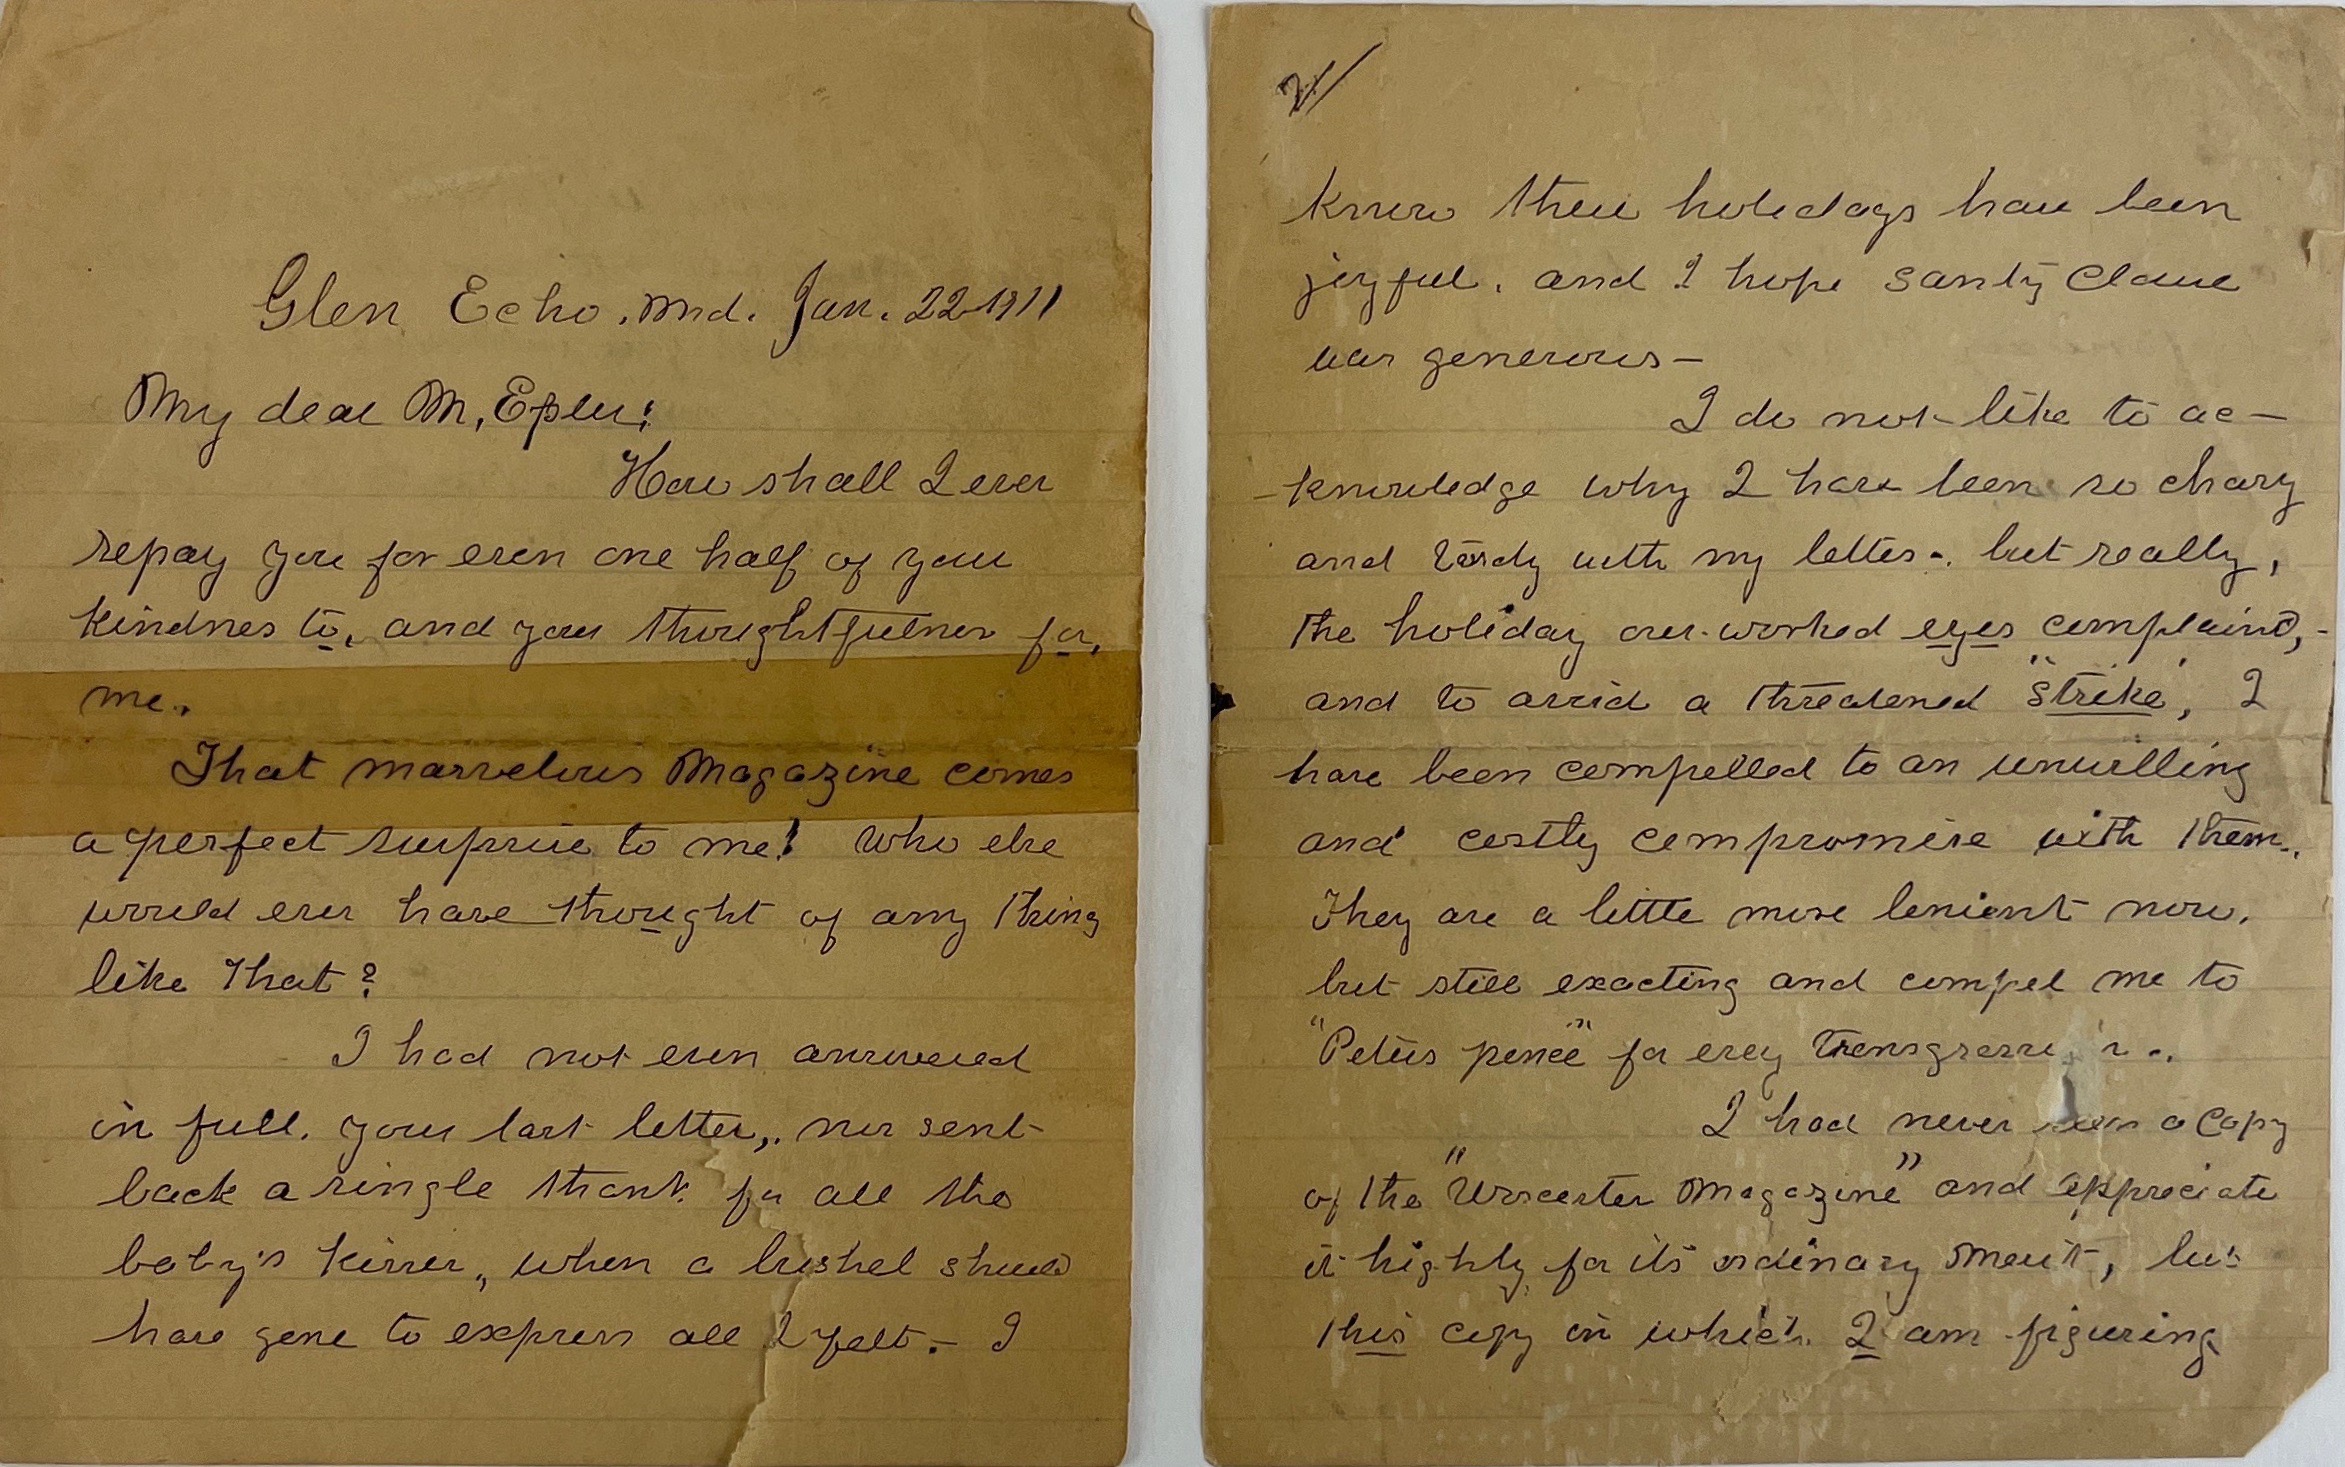 Glen Echo, Md. Jan. 22-1911
My dear M, Epler:
How shall I ever
repay you for even one half of your
kindnes to, and your thoughtfulness for,
me.
That marvelous Magazine comes
a perfect surprise to me! Who else
would ever have thought of any thing
like that?
I had not even answered
in full, your last letter, nor sent
back a single thank for all the
baby's kisses, when a bushel should
have gone to express all I felt.- I
2/
know their holidays have been
joyful, and I hope Santy Clause
was generous -
I do not like to ac-
-knowledge why I have been so chary
and tardy with my letter-. but really,
the holiday over-worked eyes complaind,-
and to avoid a threatened "strike", I
have been compelled to an unwilling
and costly compromise with them..
They are a little more lenient now,
but still exacting and compel me to
"Peters pence" for every transgression-.
I had never seen a copy
of the "Worcester Magazine" and appreciate
it highly for its ordinary merit, but
this copy in which I am figuring